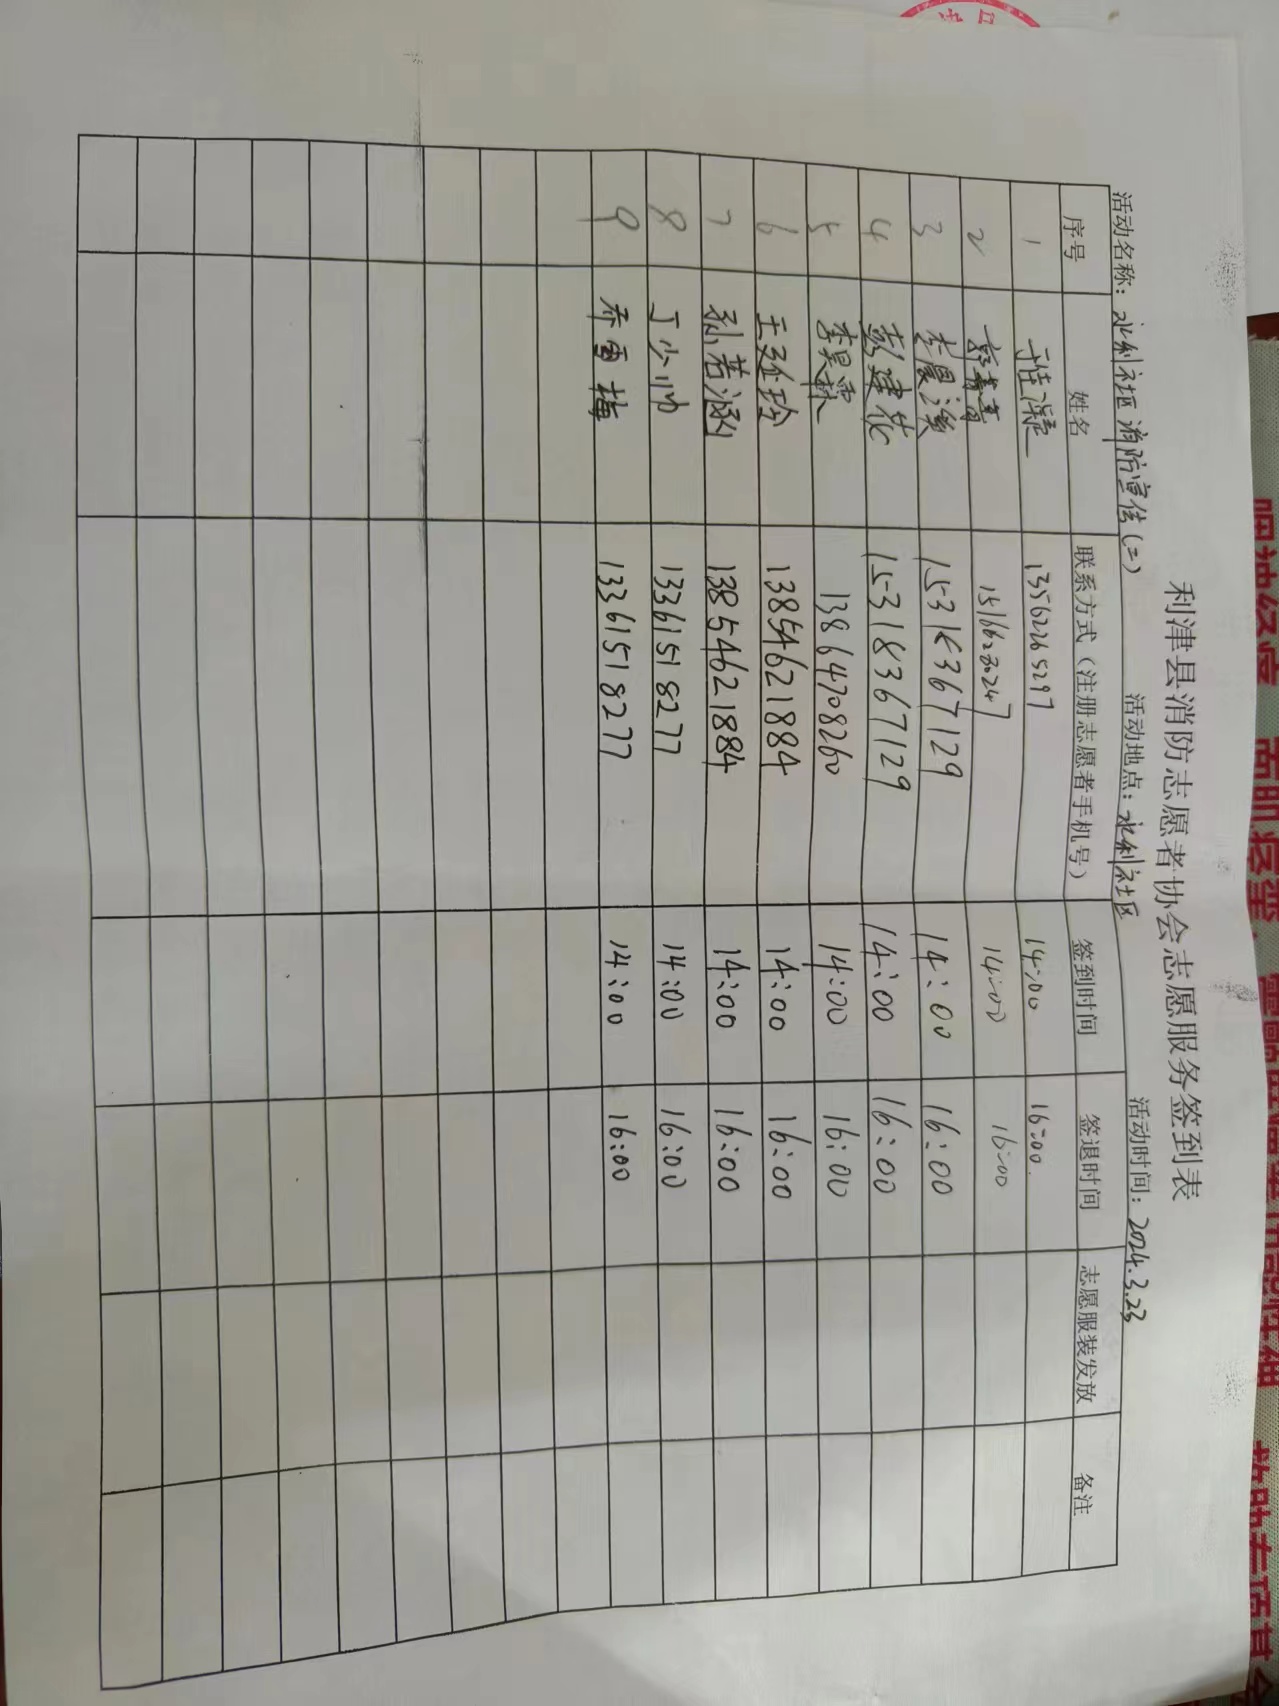 利津县消防志愿者协会志愿服务签到表
活动名称：水利社区消防宣传（二） 活动地点：水利社区 活动时间：2024.3.23
序号 姓名 联系方式（注册志愿者手机号） 签到时间 签退时间 志愿服装发放 备注
1 于佳凝 13562265297 14:00 16:00
2 15166230247 14:00 16:00
3 李晨溪 15318367129 14:00 16:00
4 彭建花 15318367129 14:00 16:00
5 李昊霖 13864708260 14:00 16:00
6 王延玲 13854621884 14:00 16:00
7 孙若涵 13854621884 14:00 16:00
8 丁少帅 13361518277 14:00 16:00
9 乔雪梅 13361518277 14:00 16:00